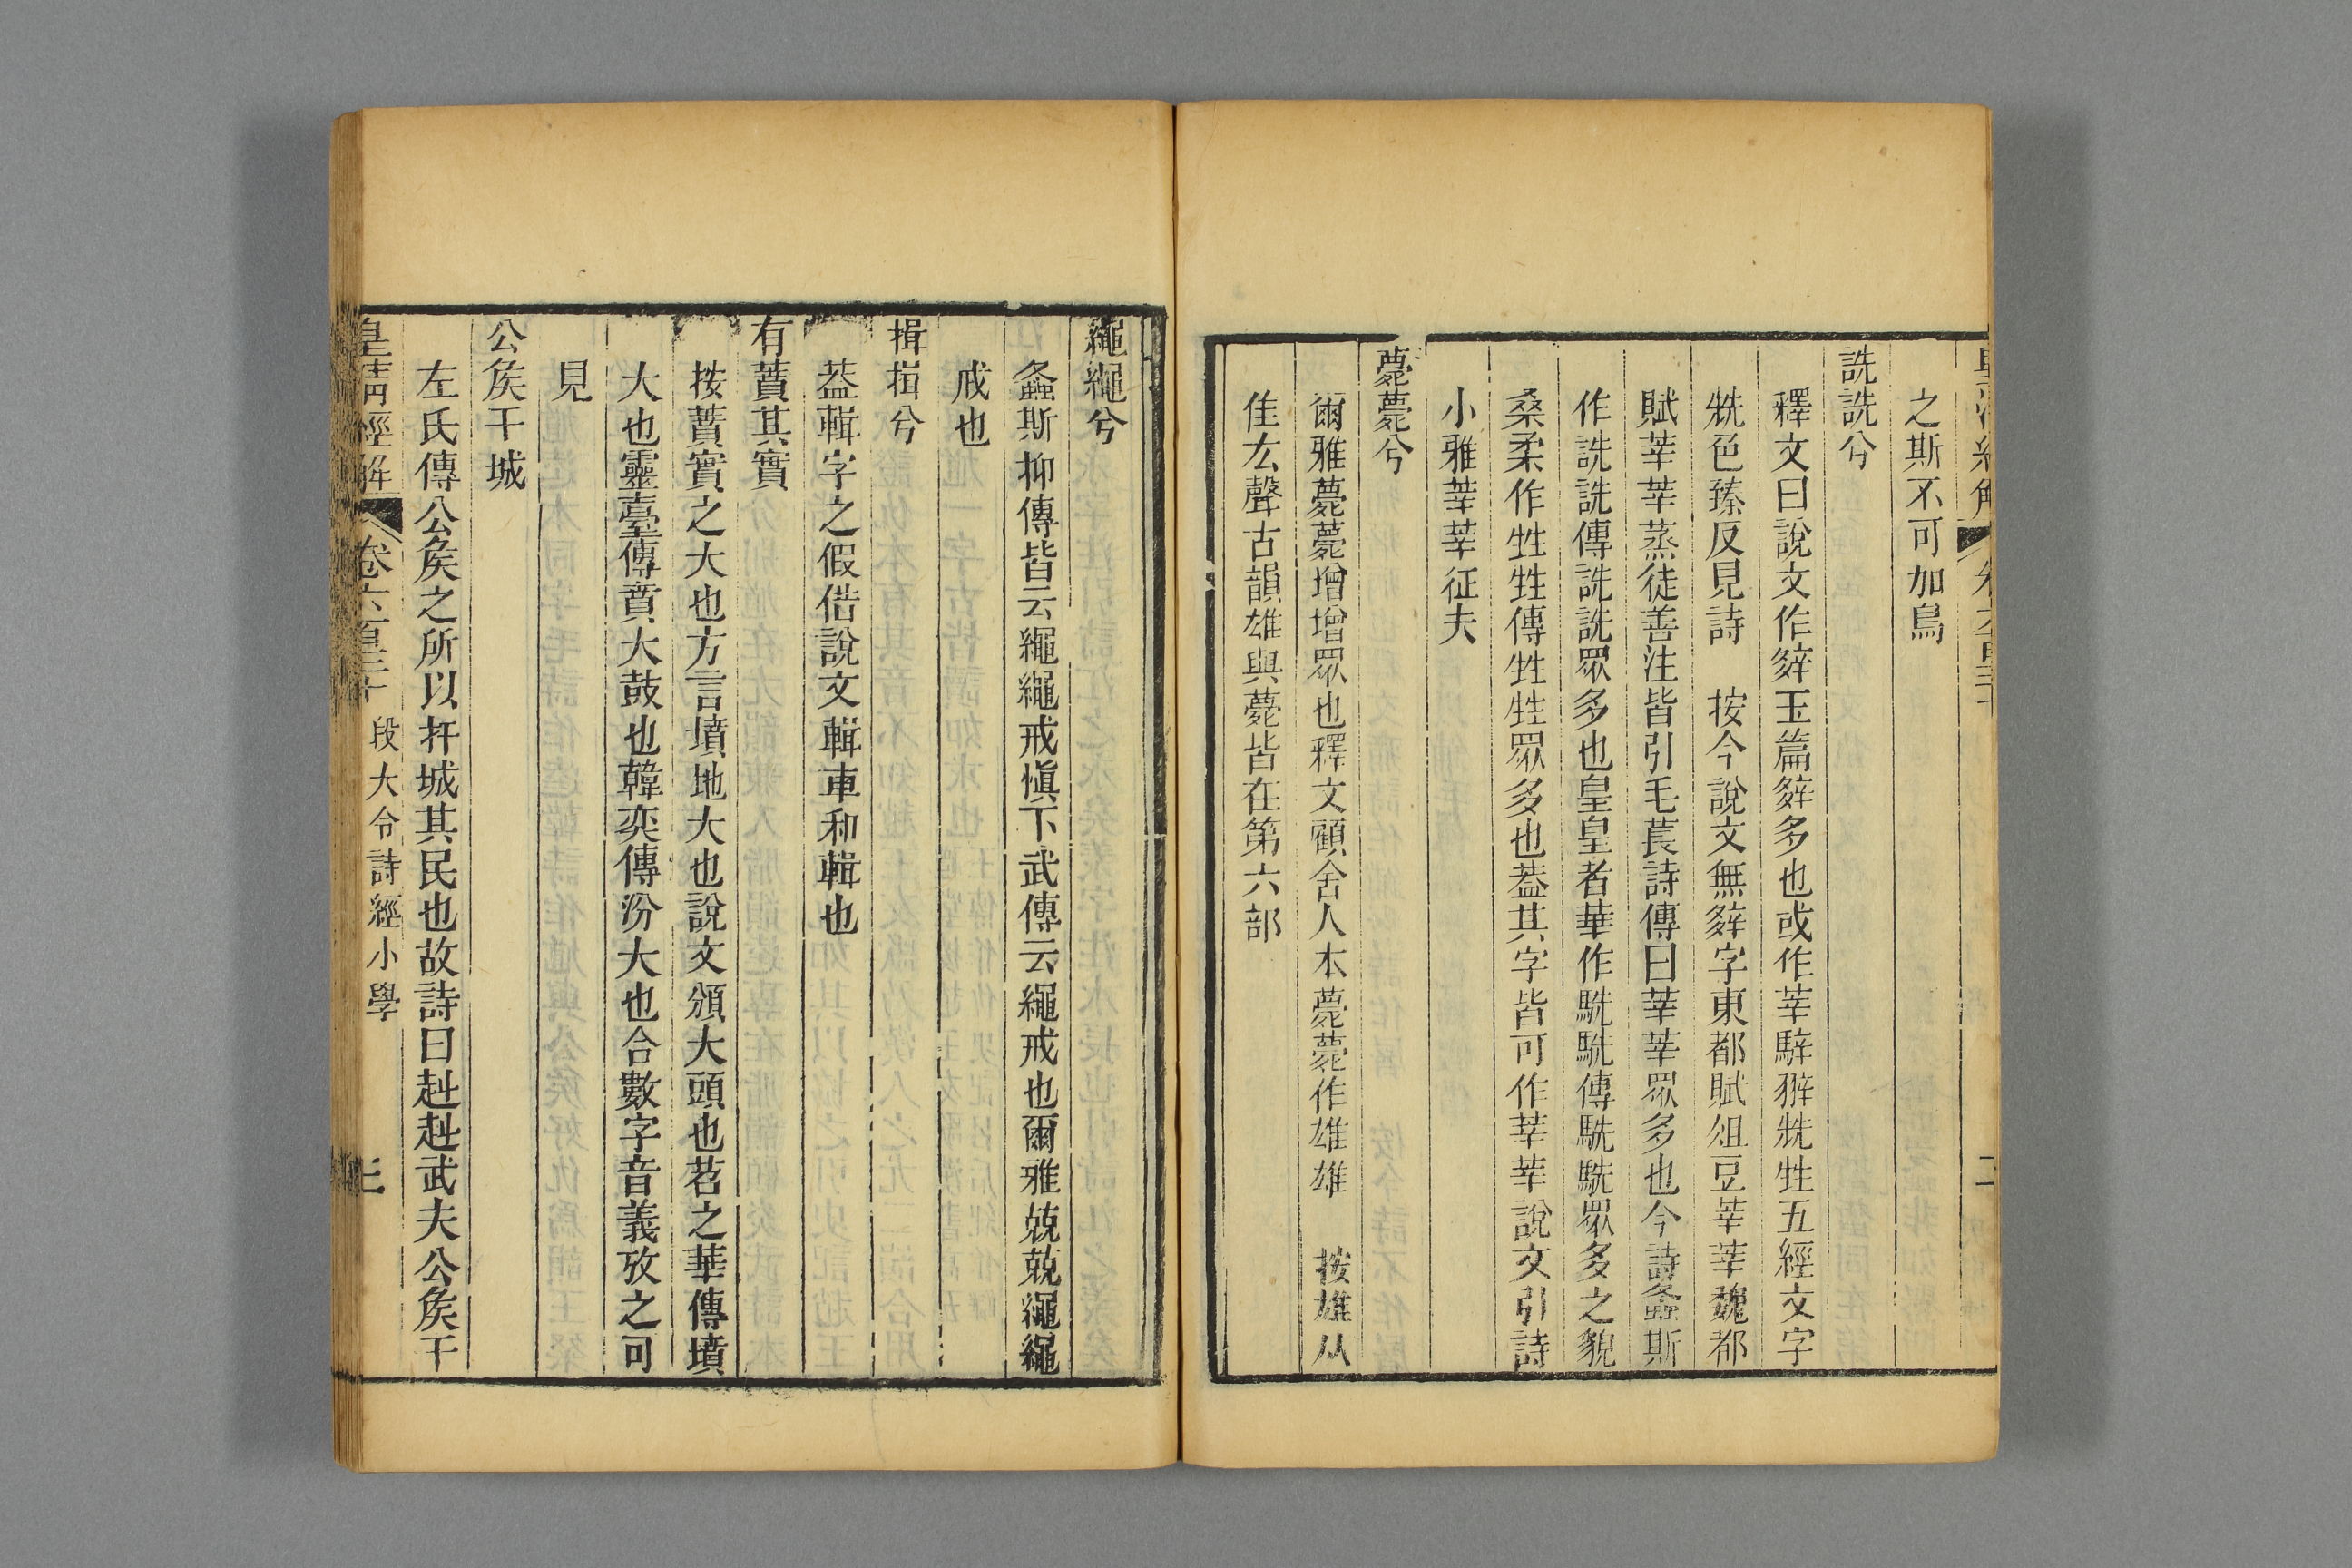 之斯不可加鳥
詵詵兮
釋文曰說文作㚞玉篇㚞多也或作莘駪𤟃兟甡五經文字
兟色臻反見詩　按今說文無㚞字東都賦俎豆莘莘魏都
賦莘莘蒸徒善注皆引毛萇詩傳曰莘莘眾多也今詩螽斯
作詵詵傳詵詵眾多也皇皇者華作駪駪傳駪駪眾多之貌
桑柔作甡甡傳甡甡眾多也葢其字皆可作莘莘說文引詩
小雅莘莘征夫
薨薨兮
爾雅薨薨增增眾也釋文顧舍人本薨薨作雄雄　按雄从
隹厷聲古韻雄與薨皆在第六部
繩繩兮
螽斯抑傳皆云繩繩戒愼下武傳云繩戒也爾雅兢兢繩繩
戒也
揖揖兮
葢輯字之假借說文輯車和輯也
有蕡其實
按蕡實之大也方言墳地大也說文頒大頭也苕之華傳墳
大也靈臺傳賁大鼓也韓奕傳汾大也合數字音義攷之可
見
公矦干城
左氏傳公矦之所以扞城其民也故詩曰赳赳武夫公矦干
皇清經解　卷六百三十　段大令詩經小學